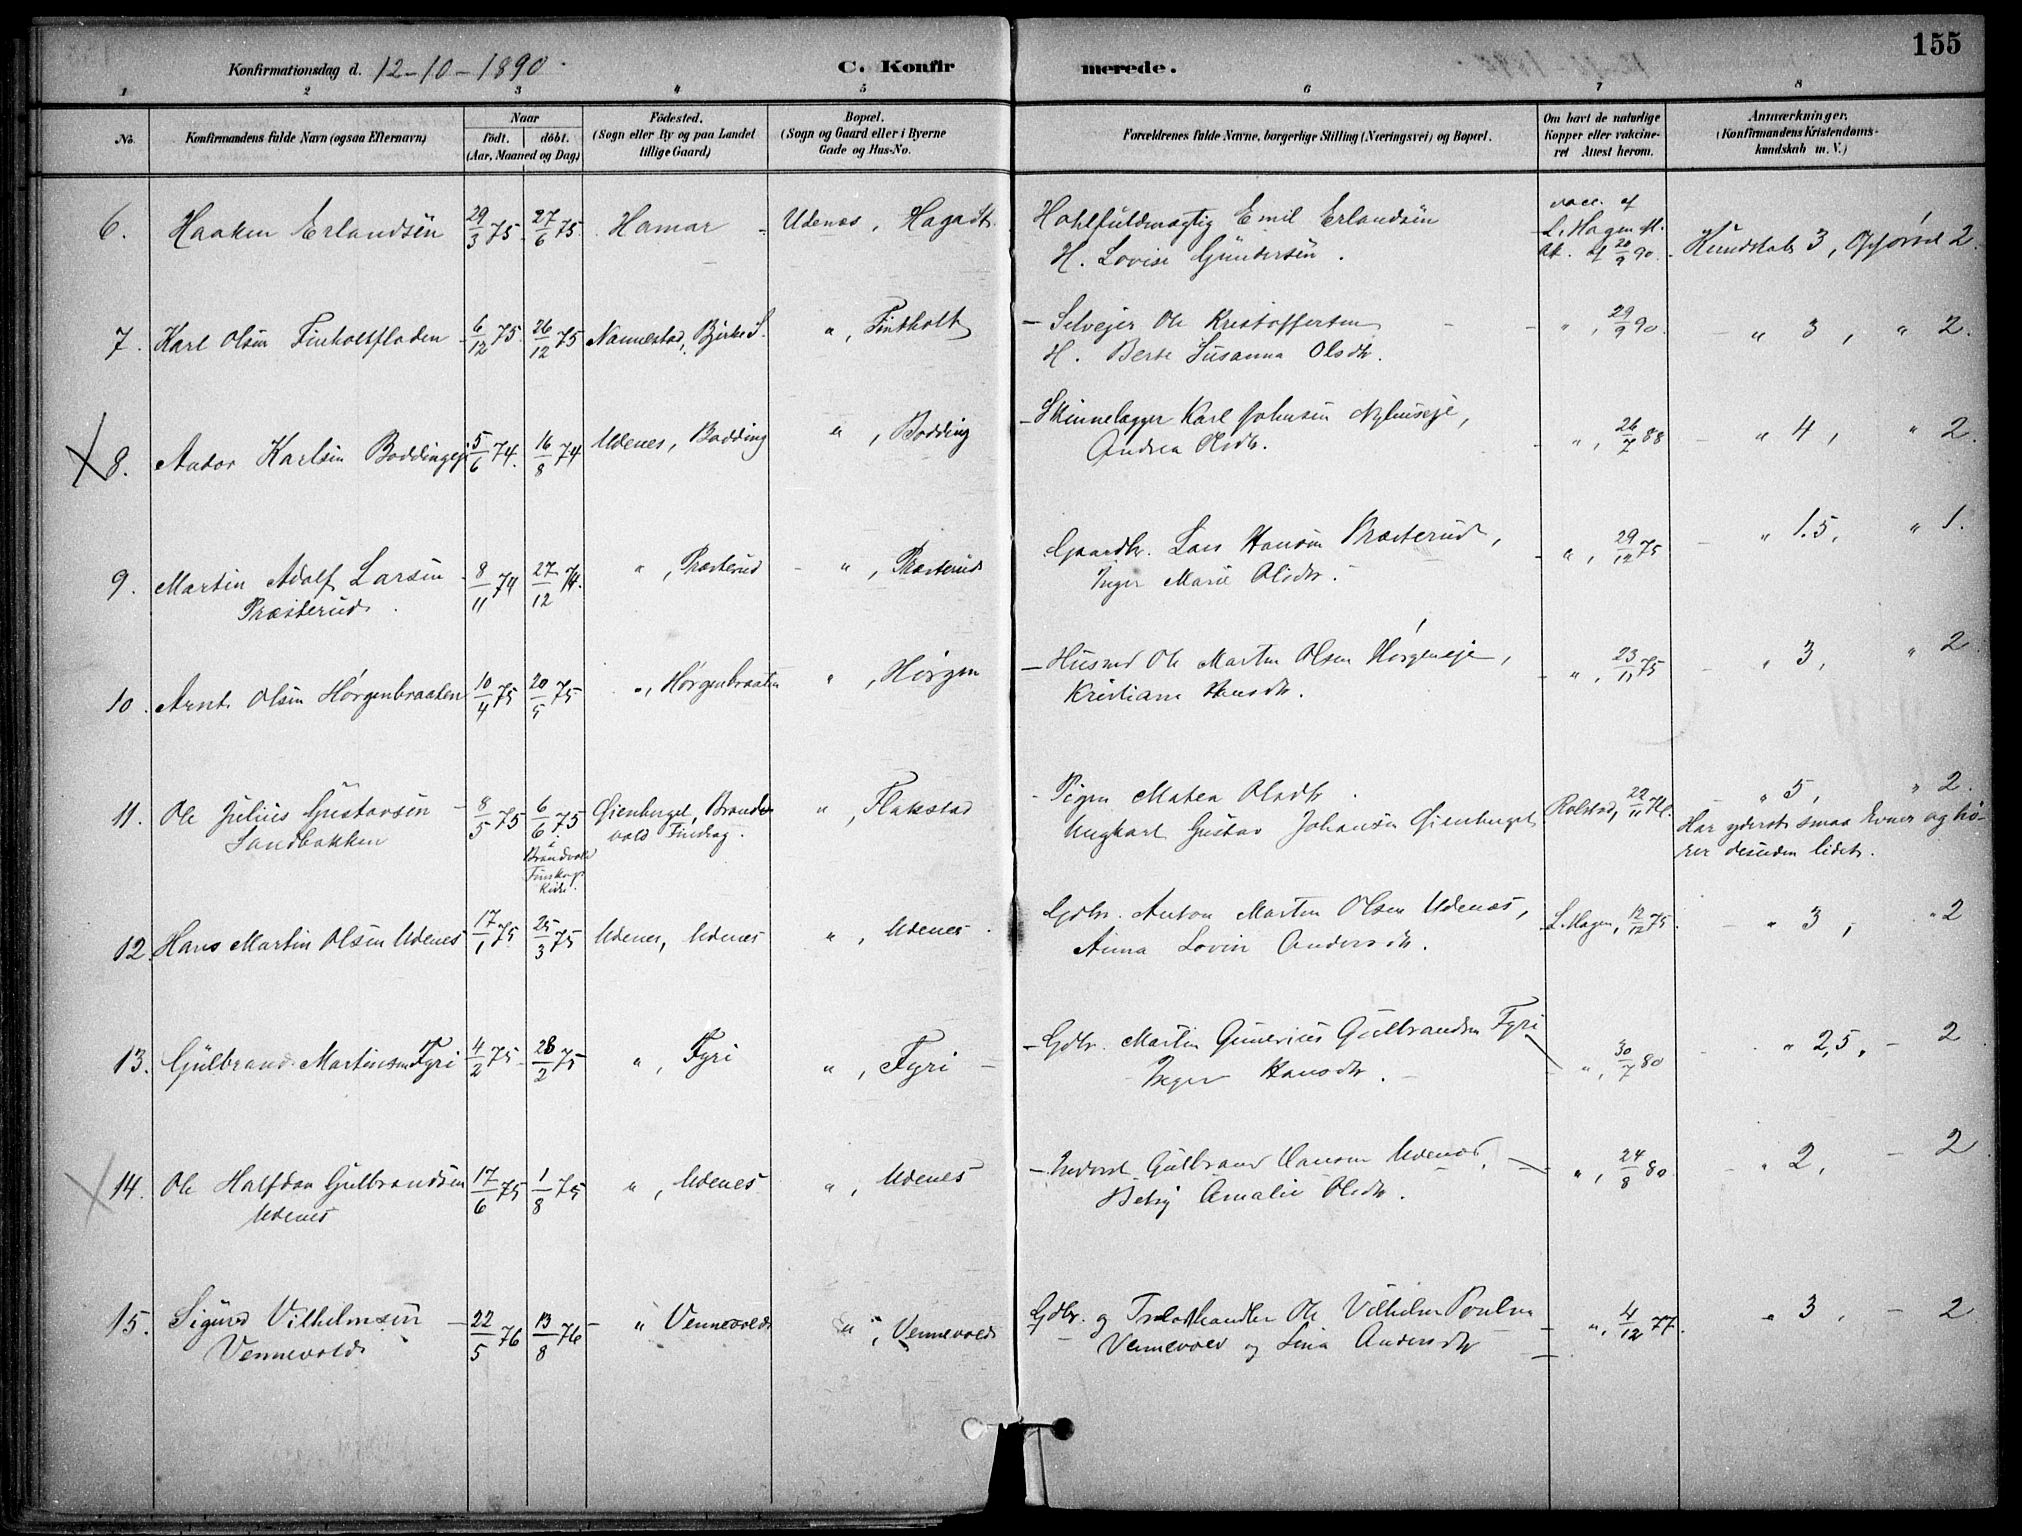 155
Konfirmationsdag d. 12-10-1890.
C. Konfirmerede.
1 2 3 4 5 6 7 8
No.
Konfirmandens fulde Navn (ogsaa Efternavn)
Naar
født. døbt.
(Aar, Maaned og Dag)
Fødested.
(Sogn eller By og paa Landet
tillige Gaard)
Bopæl.
(Sogn og Gaard eller i Byerne
Gade og Hus-No.
Forældrenes fulde Navne, borgerlige Stilling (Næringsvei) og Bopæl.
Om havt de naturlige
Kopper eller vakcine-
ret Attest herom.
Anmærkninger.
(Konfirmandens Kristendoms-
kundskab m. V.)
6. Haaken Erlandsen 29/3 75. 27/6 75. Hamar Udenes, Haga St. vacc. af
H. Lovise Gundersen. L. Hagen 20/9 90. Kundskab 3, Opførsel 2.
7. Karl Olsen Finholtfloden 6/12 75. 26/12 75 Nannestad, Bjerke S. ", Finholt Selvejer Ole Kristoffersen ", 29/9 90. " 3, " 2.
H. Berte Susanna Olsdtr.
8. Andor Karlsen Boddingeje 5/6 74. 16/8 74 Udenes, Bodding ", Bodding Karl Johnsen Nyhuseje, ", 26/7 88 " 4, " 2.
Andrea Olsdtr.
9. Martin Adolf Larsen 8/11 74 27/12 74. ", Præsterud ", Præsterud Gaardbr. Lars Hansen Præsterud, ", 29/12 75 " 1.5, " 1.
Præsterud. Inger Marie Olsdtr.
10. Arnt Olsen Hørgenbraaten 10/4 75 20/5 75 ", Hørgenbraaten ", Hørgen Husmd Ole Martin Olsen Hørgeneje, ", 23/11 75 " 3, " 2
Kristiane Hansdtr.
11. Ole Julius Gustavsen 8/5 75 6/6 75 Gienberget, Brande- ", Flakstad Pigen Matea Olsdtr. Rolstad, 22/11 76. " 5, " 2.
Sandbakken i Brandvold Finskog Kirke. vold Finskog. Ungkarl Gustav Johansen Gienberget Har yderst smaa Evner og hø-
rer desuden lidet.
12. Hans Martin Olsen Udenes 17/1 75 25/3 75 Udenes, Udenes ", Udenes. Gdbr. Anton Martin Olsen Udenes, L. Hagen, 12/12 75. " 3, " 2
Anna Lovise Andersdtr.
13. Gulbrand Martinsen Fyri 4/2 75 28/2 75 ", Fyri ", Fyri Gdbr. Martin Gunerius Gulbrandsen Fyri ", 30/7 80 " 2,5, - 2
Inger Hansdtr.
14. Ole Halfdan Gulbrandsen 17/6 75 1/8 75 ", Udenes ", Udenes Inderst Gulbrand Hansen Udenes, ", 24/8 80 " 2, - 2
Udenes Betsy Amalie Olsdtr.
15. Sigurd Vilhelmsen 22/5 76 13/8 76 " Vennevold ", Vennevold Gdbr. og Trælasthandler Ole Vilhelm Poulsen ", 4/12 77. " 3, - 2
Vennevold Vennevold og Lina Andersdtr